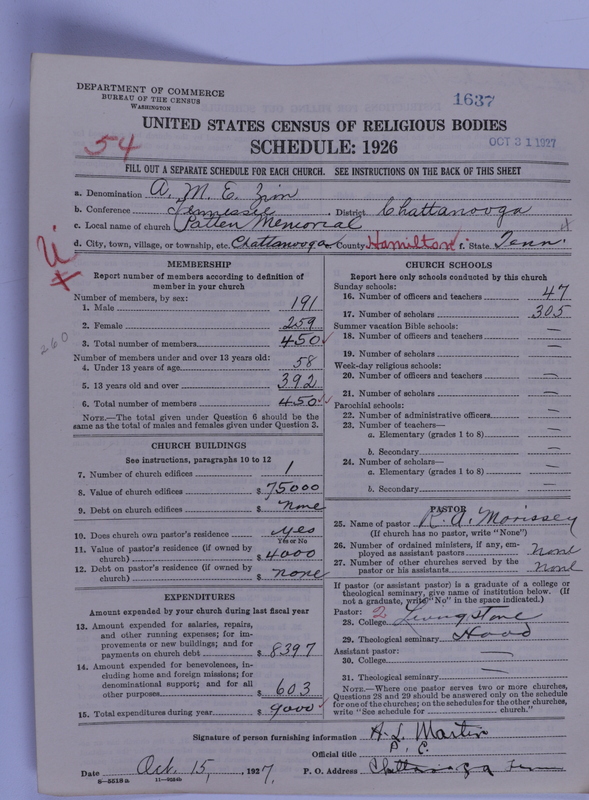 DEPARTMENT OF COMMERCE
BUREAU OF THE CENSUS
WASHINGTON
1637
UNITED STATES CENSUS OF RELIGIOUS BODIES
OCT 31 1927
54
SCHEDULE: 1926
FILL OUT A SEPARATE SCHEDULE FOR EACH CHURCH. SEE INSTRUCTIONS ON THE BACK OF THIS SHEET
a. Denomination A. M. E. Zion
b. Conference Tennessee b. District Chattanooga
c. Local name of church Patten Memorial
d. City, town, village, or township, etc. Chattanooga County Hamilton State Tenn.
MEMBERSHIP
Report number of members according to definition of member in your church
Number of members, by sex:
1. Male 191
2. Female 259
3. Total number of members 450
260
Number of members under and over 13 years old:
4. Under 13 years of age 58
5. 13 years old and over 392
6. Total number of members 450
NOTE.—The total given under Question 6 should be the
same as the total of males and females given under Question 3.
CHURCH BUILDINGS
See instructions, paragraphs 10 to 12
7. Number of church edifices 1
8. Value of church edifices $ 75000
9. Debt on church edifices $ none
10. Does church own pastor's residence yes
Yes or No
11. Value of pastor's residence (if owned by
church) $ 4000
12. Debt on pastor's residence (if owned by
church) $ none
EXPENDITURES
Amount expended by your church during last fiscal year
13. Amount expended for salaries, repairs,
and other running expenses; for im-
provements or new buildings; and for
payments on church debt $ 8397
14. Amount expended for benevolences, in-
cluding home and foreign missions; for
denominational support; and for all
other purposes $ 603
15. Total expenditures during year $ 9000
CHURCH SCHOOLS
Report here only schools conducted by this church
Sunday schools:
16. Number of officers and teachers 47
17. Number of scholars 305
Summer vacation Bible schools:
18. Number of officers and teachers —
19. Number of scholars —
Week-day religious schools:
20. Number of officers and teachers —
21. Number of scholars —
Parochial schools:
22. Number of administrative officers —
23. Number of teachers—
a. Elementary (grades 1 to 8) —
b. Secondary —
24. Number of scholars—
a. Elementary (grades 1 to 8) —
b. Secondary —
PASTOR
25. Name of pastor R. A. Morissey
(If church has no pastor, write "None")
26. Number of ordained ministers, if any, em-
ployed as assistant pastors None
27. Number of other churches served by the
pastor or his assistants None
If pastor (or assistant pastor) is a graduate of a college or
theological seminary, give name of institution below. (If
not a graduate, write "No" in the space indicated.)
Pastor: 2
28. College Livingstone
29. Theological seminary Hood
Assistant pastor:
30. College —
31. Theological seminary —
NOTE.—Where one pastor serves two or more churches,
Questions 28 and 29 should be answered only on the schedule
for one of the churches; on the schedules for the other churches,
write "See schedule for church."
Signature of person furnishing information H. L. Martin
Official title P. C.
Date Oct. 15, 1927. P. O. Address Chattanooga Tenn
6—5518 a